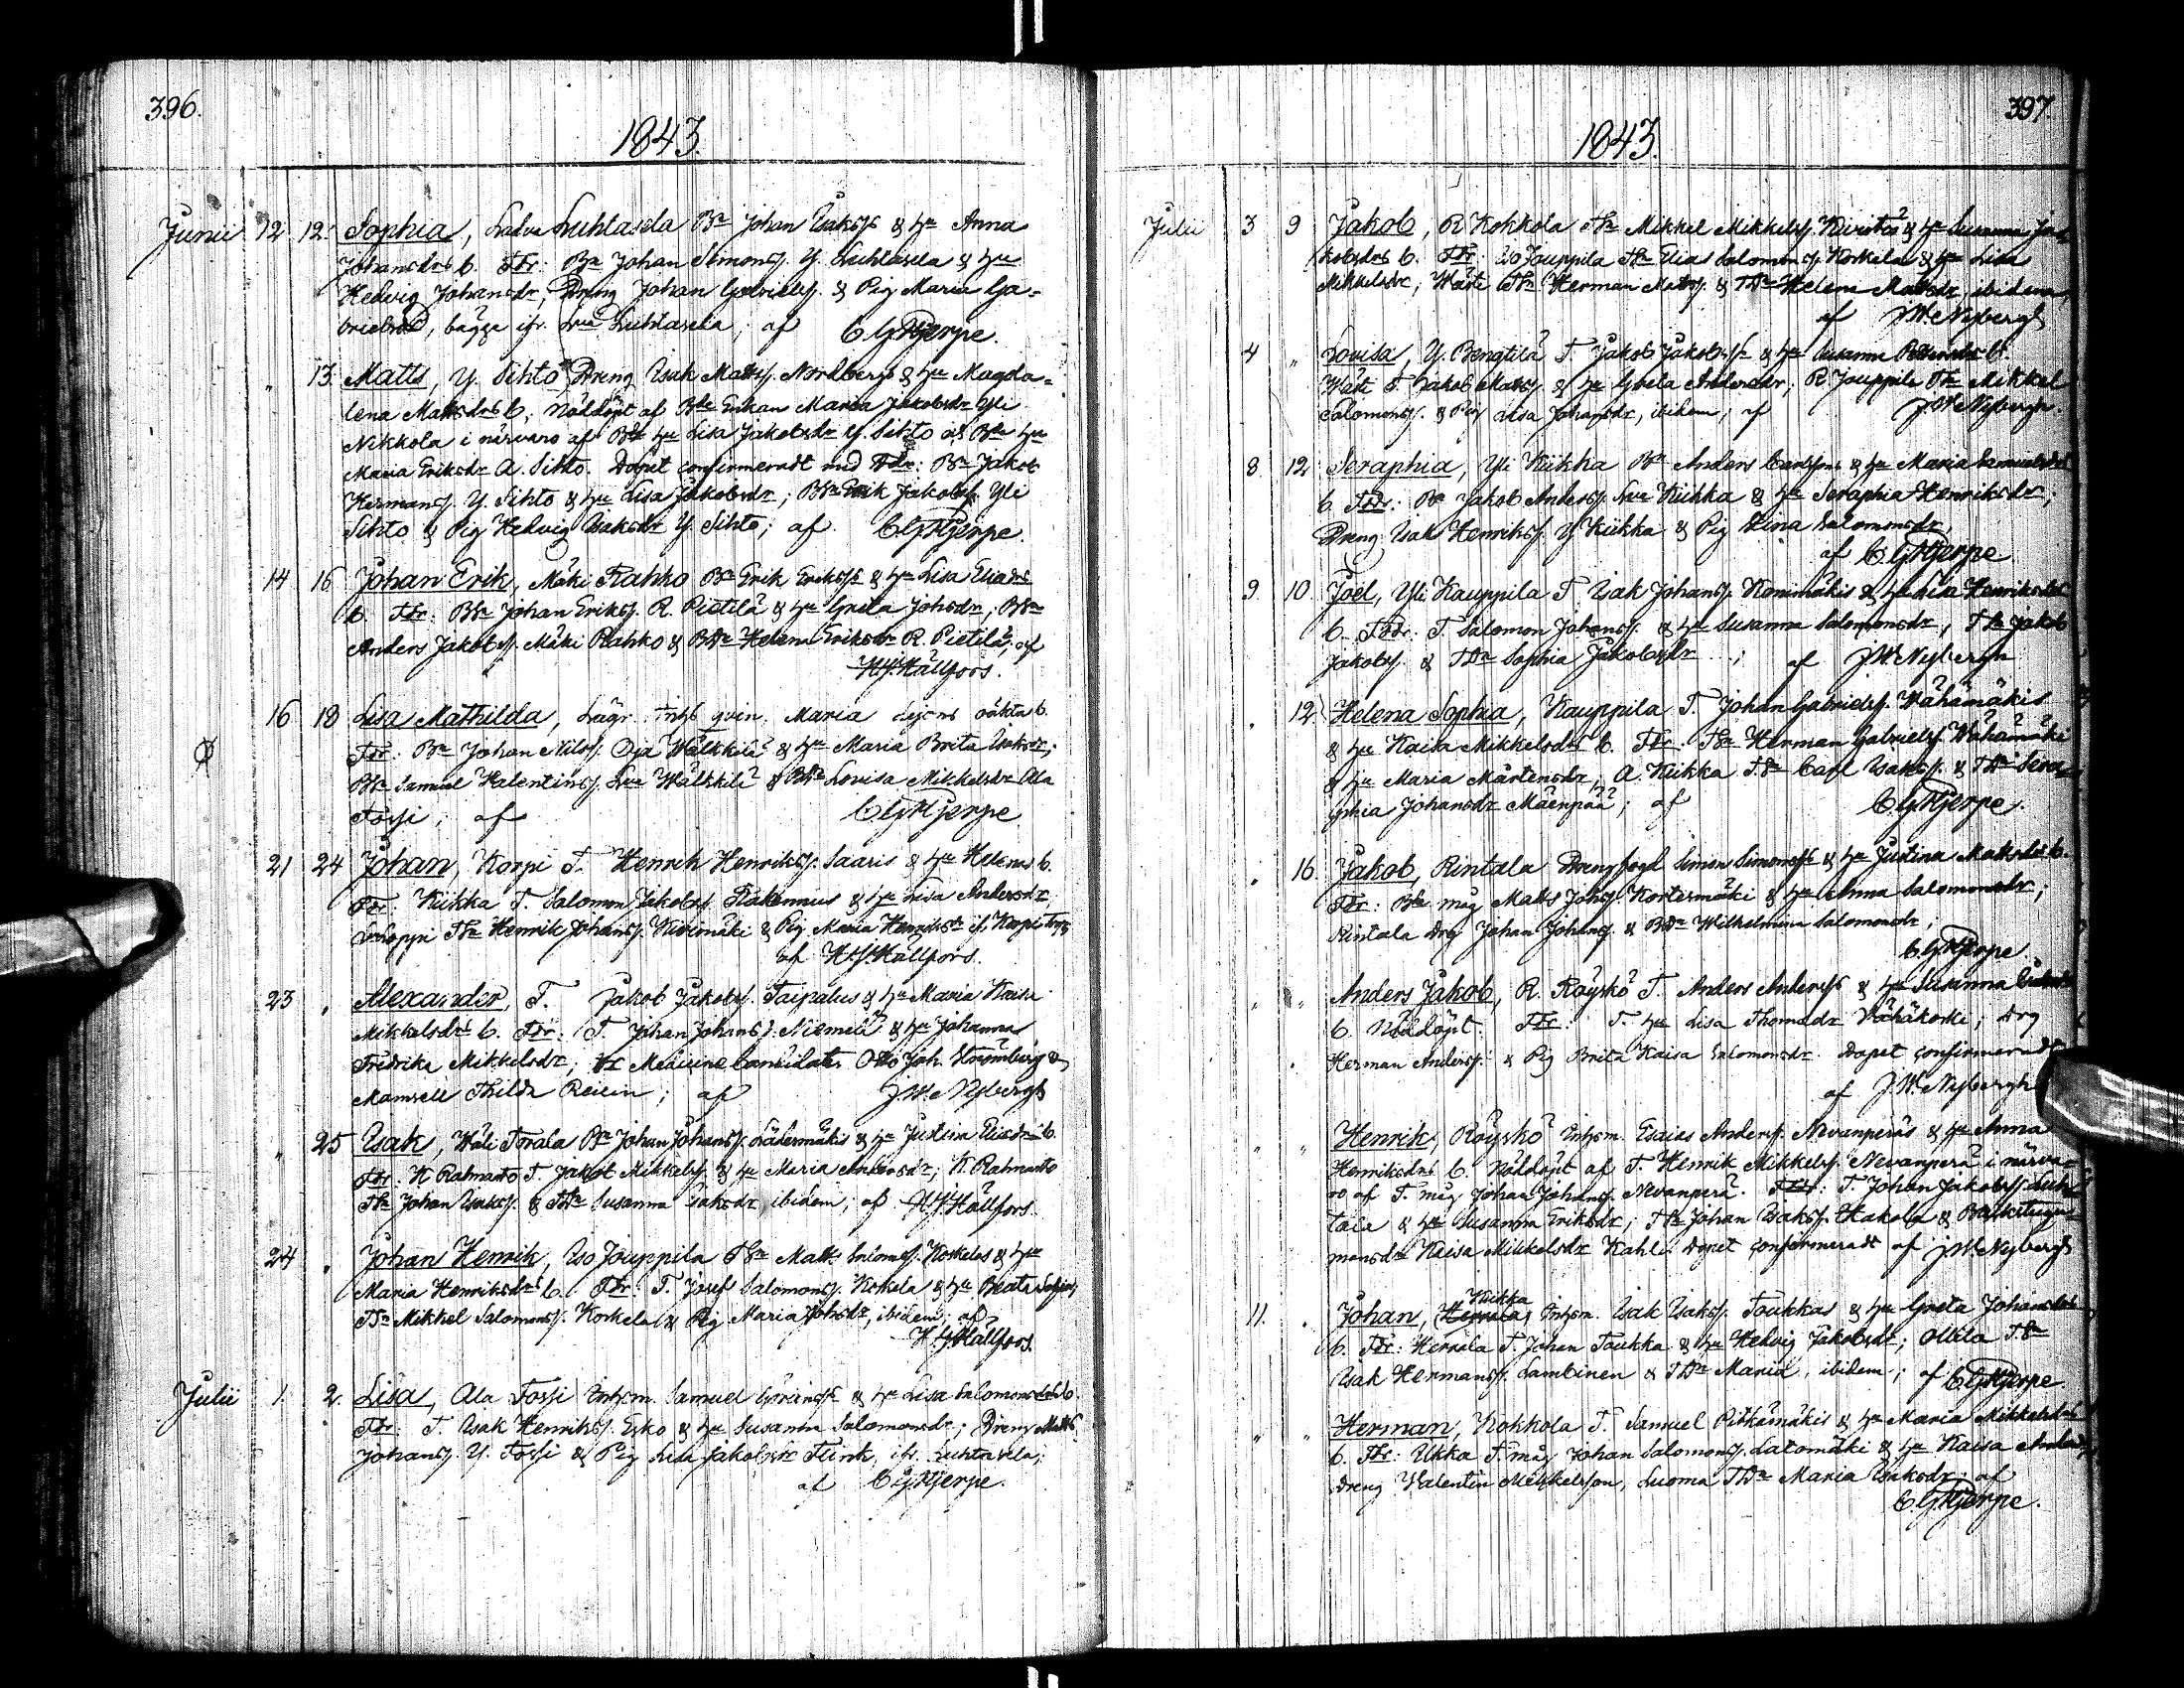 396.
1843.
Junii 12 12. Sophia, Latva Luhtasela Bn Johan Isakss. & hu Anna
Johansdrs b. Fdr: Bn Johan Simonss. Y. Luhtasela & hu
Hedvig Johansdr; Dreng Johan Gabrielss. & Pig Maria Ga-
brielsdr, bägge ifr. Luhtasela; af C G Hjerpe.
" 13. Matts, Y. Sihto Dreng Isak Matss. Nordbergs & hu Magda-
lena Matsdrs b; Nöddöpt af Bde Enkan Maria Jakobsdr Yli
Nikkola i närvaro af Bde hu Lisa Jakobsdr Y. Sihto och Bde hu
Maria Eriksdr A. Sihto. Dopet confirmeradt med Fdr: Bn Jakob
Hermanss. Y. Sihto & hu Lisa Jakobsdr; BSn Erik Jakobss. Yli
Sihto & Pig Hedvig Isaksdr Y. Sihto; af C G Hjerpe.
14 16 Johan Erik, Mäki Rahko Bn Erik Erikss. & hu Lisa Eliadrs
b. Fdr: BSn Johan Erikss. R. Pietilä & hu Greta Johsdr; BSn
Anders Jakobss. Mäki Rahko & BDr Helena Eriksdr R. Pietilä; af
H. J. Hällfors.
16 18 Lisa Mathilda, Lägr. Inhs qvin. Maria Lejons oäkta b.
Fdr: Bn Johan Nilss. Oja Wälkkilä & hu Maria Brita Isaksdr;
BSn Samuel Valentinss. Wälkkilä & BDr Lovisa Mikkelsdr Ala
Fossi; af C G Hjerpe
21 24 Johan, Korpi T. Henrik Henrikss. Saaris & hu Helenas b.
Fdr: Kiikka T. Salomon Jakobss. Rakennus & hu Lisa Andersdr;
TSn Henrik Johanss. Kivimäki & Pig Maria Henriksdr if. Korpi
af H. J. Hällfors.
23 " Alexander, T. Jakob Jakobss. Taipalus & hu Maria Kaisa
Mikkelsdrs b. Fdr: T. Johan Johanss. Niemelä & hu Johanna
Fredrika Mikkelsdr; Hr Medicine Candidaten Otto Joh. Strömborg &
Mamsell Thilda Reilin; af J. W. Nybergh
" 25 Isak, Wäli Torala Bn Johan Johanss. Lädermäkis & hu Justina Eliadrs b.
Fdr: K Ratmanto T. Jakob Mikkelss. & hu Maria Andersdr; K. Ratmanto
TSn Johan Isakss. & TDr Susanna Isaksdr, ibidem; af H. J. Hällfors.
24 " Johan Henrik, Iso Jouppila TSn Matts Salomonss. Korkelas & hu
Maria Henriksdrs b. Fdr: T. Josef Salomonss. Korkela & hu Beata Sofia;
TSn Mikkel Salomonss. Korkela & Pig Maria Johsdr, ibidem; af
H. J. Hällfors.
Julii 1. 2. Lisa, Ala Fossi Inhsm. Samuel Göranss. & hu Lisa Salomonsdrs b.
Fdr: T. Isak Henrikss. Esko & hu Susanna Salomonsdr; Dreng Matts
Johanss. Y. Fossi & Pig Lisa Jakobsdr Flink, ifr. Luhtasela;
af C G Hjerpe.
397.
1843.
Julii 3 9 Jakob, R Kokkola TSn Mikkel Mikkelss. Kivistös & hu Susanna Ja-
kobsdrs b. Fdr: Iso Jouppila TSn Elias Salomonss. Korkela & hu Lisa
Mikkelsdr; Wästi TSn Herman Matss. & TDr Helena Matsdr, ibidem;
af J. W. Nybergh
4 " Lovisa, Y. Bengtilä T. Jakob Jakobss. & hu Susanna b.
Wästi T Jakob Matss. & hu Greta Andersdr; R Jouppila TSn Mikkel
Salomonss. & Pig Lisa Johansdr, ibidem; af J W Nybergh.
8 12 Seraphia, Yli Kiikka Bn Anders Carlssons & hu Maria Samuelsdrs
b. Fdr: Bn Jakob Anderss. Kiikka & hu Seraphia Henriksdr;
Dreng Isak Henrikss. Y Kiikka & Pig Stina Salomonsdr,
af C. G Hjerpe
9 10 Joel, Yli Kauppila T Isak Johanss. Konimäkis & hu Lisa Henriksdrs
b. Fdr: T. Salomon Johanss. & hu Susanna Salomonsdr, TSn Jakob
Jakobss. & TDr Sophia Jakobsdr ; af J. W. Nybergh
" 12 Helena Sophia, Kauppila T. Johan Gabrielss. Wähämäkis
& hu Kaisa Mikkelsdrs b. Fdr: TSn Herman Gabrielss. Wähämäki
& hu Maria Mårtensdr; A. Kiikka T.Sn Carl Isakss. & TDr Sera-
phia Johansdr Mäenpää; af C. G Hjerpe.
" 16 Jakob, Rintala Drengfogd Simon Simonss. & hu Justina Matsdrs b.
Fdr: Bde måg Matts Johss. Kortesmäki & hu Anna Salomonsdr;
Rintala Drg Johan Johanss. & BDr Wilhelmina Salomonsdr;
C. G Hjerpe
" " Anders Jakob, R. Röyskö T. Anders Anderss. & hu Susanna
b. Nöddöpt. Fdr: T. hu Lisa Thomadr Wähäkoski; Drg
Herman Anderss. & Pig Brita Kaisa Salomonsdr. Dopet confirmeradt
af J. W. Nybergh
" " Henrik, Röyskö Inhsm. Esaias Anderss. Nevanperäs & hu Anna
Henriksdrs b. Nöddöpt af T. Henrik Mikkelss. Nevanperä i närva-
ro af T. måg Johan Johanss. Nevanperä. Fdr: T. Johan Jakobss. Luh-
tala & hu Susanna Eriksdr; TSn Johan Isakss. Hakola & Backstugu-
mansdr Kaisa Mikkelsdr Kahli. Dopet confirmeradt af J W Nybergh
Kiikka
11. " Johan, Herrala, Inhsm. Isak Isakss. Toukkas & hu Greta Johansdrs
b. Fdr: Herrala T. Johan Toukka & hu Hedvig Jakobsdr; Ollila T.Sn
Isak Hermanss. Lamtinen & TDr Maria, ibidem; af C G Hjerpe.
" " Herman, Kokkola T. Samuel Pitkämäkis & hu Maria Mikkelsdrs
b. Fdr: Ukka T. måg Johan Salomonss. Latomäki & hu Kaisa
Dreng Valentin Mikkelsson, Luoma TDr Maria Isaksdr; af
C G Hjerpe.